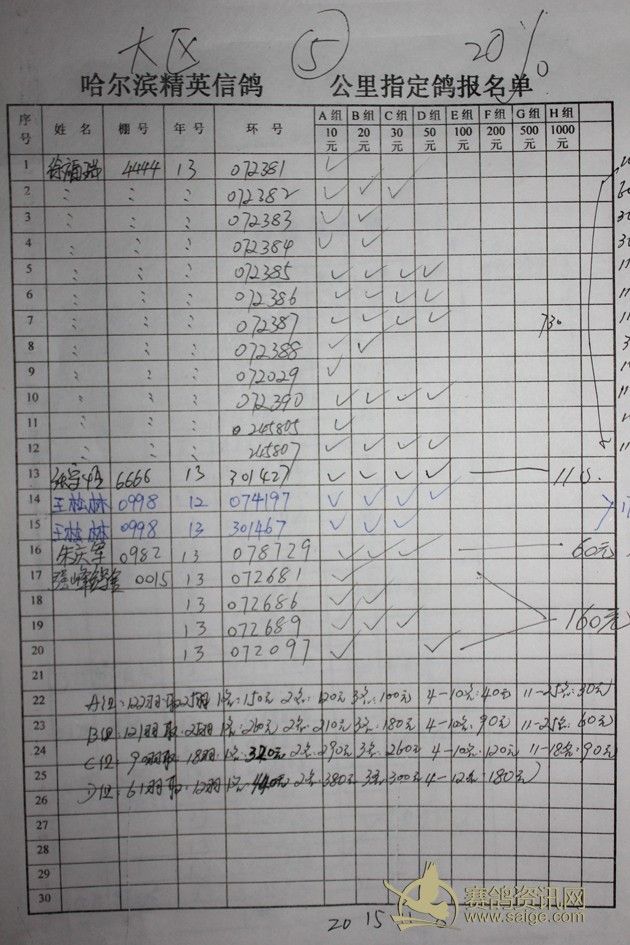 大区 ⑤ 20%
哈尔滨精英信鸽 公里指定鸽报名单
序号 姓名 棚号 年号 环号 A组10元 B组20元 C组30元 D组50元 E组100元 F组200元 G组500元 H组1000元
1 徐福瑞 4444 13 072381 ✓
2 〃 〃 〃 072382 ✓ ✓ ✓
3 〃 〃 〃 072383 ✓ ✓
4 〃 〃 〃 072384 ✓ ✓
5 〃 〃 〃 072385 ✓ ✓ ✓ ✓
6 〃 〃 〃 072386 ✓ ✓ ✓ ✓
7 〃 〃 〃 072387 ✓ ✓ ✓ ✓ 730
8 〃 〃 〃 072388 ✓ ✓
9 〃 〃 〃 072029 ✓
10 〃 〃 〃 072390 ✓ ✓ ✓ ✓
11 〃 〃 〃 245805 ✓
12 〃 〃 〃 245807 ✓ ✓ ✓ ✓
13 6666 13 301427 ✓ ✓ ✓ ✓ 110
14 王松林 0998 12 074197 ✓ ✓ ✓ ✓
15 王松林 0998 13 301467 ✓ ✓ ✓
16 朱庆军 0982 13 078729 ✓ ✓ ✓ 60元
17 0015 13 072681 ✓
18 13 072686 ✓ ✓
19 13 072689 ✓ ✓ ✓ 160元
20 13 072097 ✓ ✓
21
22 A组:122羽取25羽 1名:150元 2名:120元 3名:100元 4-10名:40元 11-25名:30元
23 B组:121羽取25羽 1名:260元 2名:210元 3名:180元 4-10名:90元 11-25名:60元
24 C组:90羽取18羽 1名:320元 2名:290元 3名:260元 4-10名:120元 11-18名:90元
25 D组:61羽取12羽 1名:440元 2名:380元 3名:300元 4-12名:180元
26
27
28
29
30
2015
赛鸽资讯网
www.saige.com